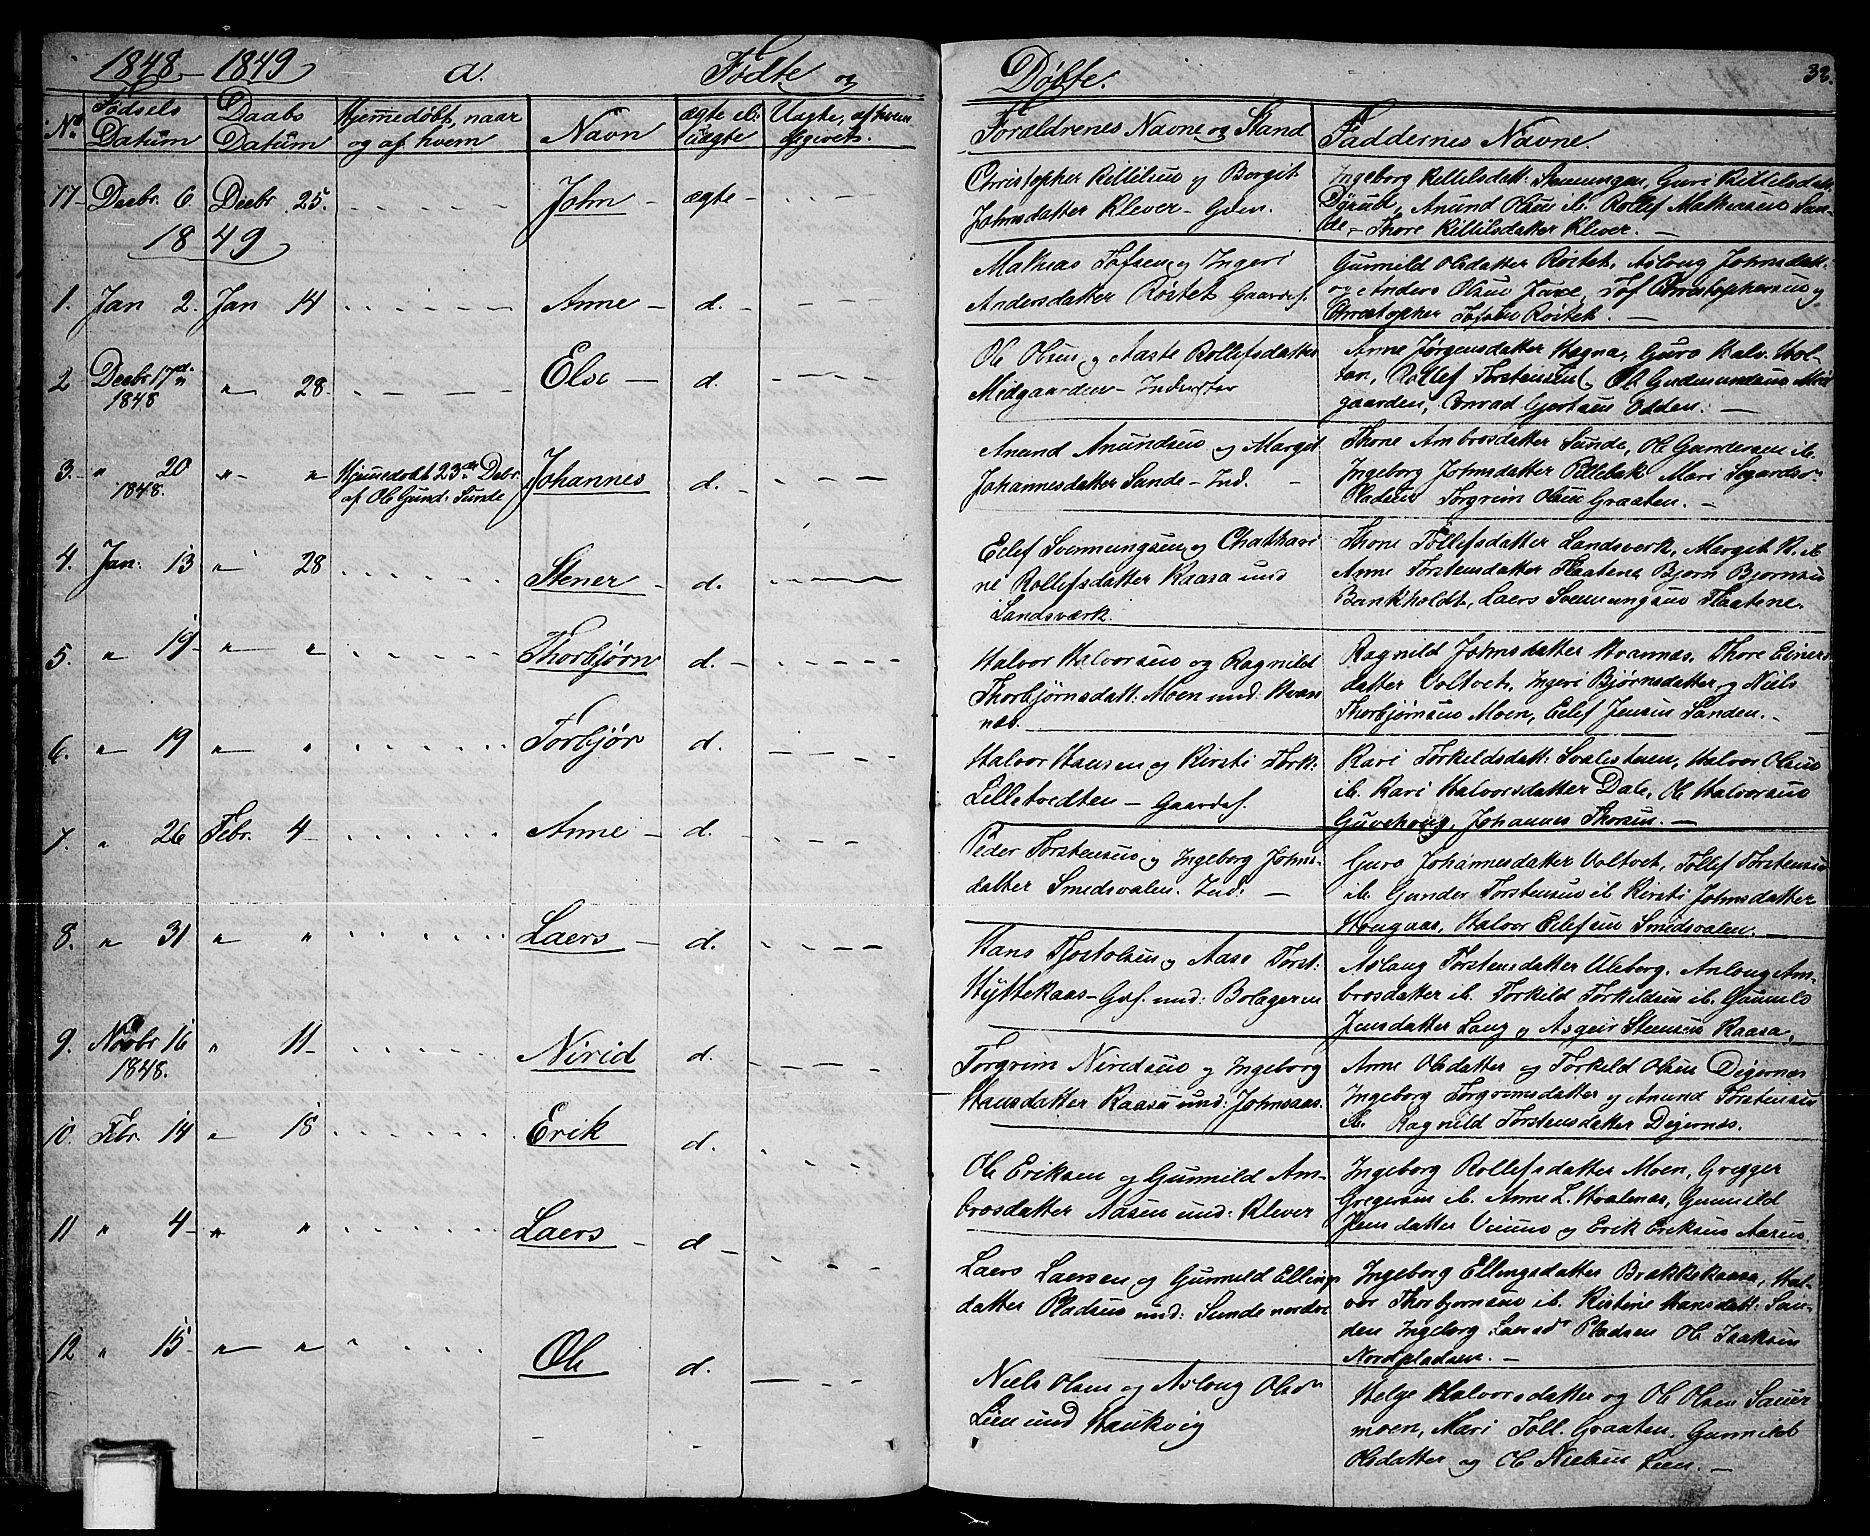 1848 - 1849 a. Fødte og Døbte. 32.
No Fødsels Datum Daabs Datum Hjemmedøbt, naar og af hvem Navn ægte el: uægte Uægte, af hvem Forældrenes Navne og Stand Faddernes Navne.
17 Decbr. 6. Decbr. 25. John ægte
Christopher Killilsen og Borgit
Johnsdatter Klever - Gaardm.
Ingeborg Kittilsdatt: Guri Kittilsdatt
Anund Olsen ib. Rollef Mathiesen Sun-
de, - Thore Kittilsdatter Klever. -
1849
1. Jan 2. Jan 14 Anne - d. -
Mathias Tofsen og Ingeri
Andersdatter Röitet Gaardf.
Gunnild Olsdatter Röitet, Aslong Johnsdatt.
og Anders Olsen Tof Christophersen og
Christopher Tofsen Röitet. -
2 Decbr. 17de 1848 " 28. Else - d.
Ole Olsen og Aaste Rollefsdatter
Midgaarden - Inderster
Anne Jørgensdatter Hagna, Guro Halv. Hol-
tan, Rollef Torstensen, Ole Gudmundsen Mid
gaarden, Conrad Gjertsen Odden. -
3. " 20 1848. " " Hjemmedøbt 23de Decbr. af Ole Gund. Sunde Johannes d. -
Anund Anundsen og Margit
Johannesdatter Sunde - Ind. -
Thone Ambrosdatter Sunde, Ole Gundersen ib.
Ingeborg Johnsdatter Mari Sigurds
Pladsen Torgrim Olsen Graaten. -
4. Jan: 13 " 28 Stener - d. -
Eilef Svennungsen og Chathari
ne Rollefsdatter Raasa und
Landsværk.
Thone Tollefsdatter Landsverk, Margit K. ib
Anne Torstensdatter Flaatene Bjørn Bjørnsen
Bankholdt, Laers Svennungsen Flaatene.
5. " 19 " " Thorbjørn d. -
Halvor Halvorsen og Ragnild
Thorbjørnsdatt: Moen und: Hvam
næs.
Ragnild Johnsdatter Hvannæs. Thore Einers
datter Voltvet, Ingeri Bjørnsdatter og Niels
Thorbjørnsen Moen, Eilef Jensen Sanden. -
6. " 19 " " Torbjør d. -
Halvor Hansen og Kirsti Tork:
Lilletvedten - Gaardf.
Kari Torkildsdatt: Svalesteen, Halvor Olsen
ib. Kari Halvorsdatter Dale, Ole Halvorsen
Johannes Thorsen. -
7. " 26 Febr. 4 Anne - d. -
Peder Torstensen og Ingeborg Johns-
datter Smedsvalen. Ind. -
Guro Johannesdatter Voltvet, Tollef Torstensen
ib. Gunder Torstensen ib. Kirsti Johnsdatter
Hougaas, Halvor Eilefsen Smedsvalen. -
8. " 31 " " Laers - d. -
Hans Tjostolsen og Aase Torst:
Hyttekaas - Gdf. und: Bolageren
Aslaug Torstensdatter Uleberg. Anlaug Am-
brosdatter ib. Torkild Torkildsen ib. Gunnild
Jensdatter Laug og Asgeir Steensen Raasa,
9. Novbr 16 1848. " 11 - Nirid d. -
Torgrim Niridsen og Ingeborg
Hansdatter Raasa und: Johnsaas.
Anne Olsdatter og Torkild Olsen Digernæs
Ingeborg Torgrimsdatter og Anund Torstensen
ib. Ragnild Torstensdatter Digernæs.
10. Febr. 14 " 18 Erik d.
Ole Eriksen og Gunnild Am-
brosdatter Aasen und: Klever
Ingeborg Rollefsdatter Moen, Gregger
Gregersen ib. Anne L. Hvalenæs, Gunnild
Jensdatter og Erik Eriksen Aasen.
11 " 4 " " Laers d -
Laers Laersen og Gunnild Ellings
datter Pladsen und: Sunde nordre
Ingeborg Ellingsdatter Brakkekaasa, Hal-
vor Thorbjørnsen ib. Kistine Hansdatt: San-
den Ingeborg Laersd. Pladsen Ole Isaksen
Nordpladsen. -
12 " 15 " " Ole d. -
Niels Olsen og Aslong Olsd.
Lien und Haukvig
Helge Halvorsdatter og Ole Olsen Sauer
moen, Mari Toll. Graaten. Gunnild
Olsdatter og Ole Nielsen Lien. -